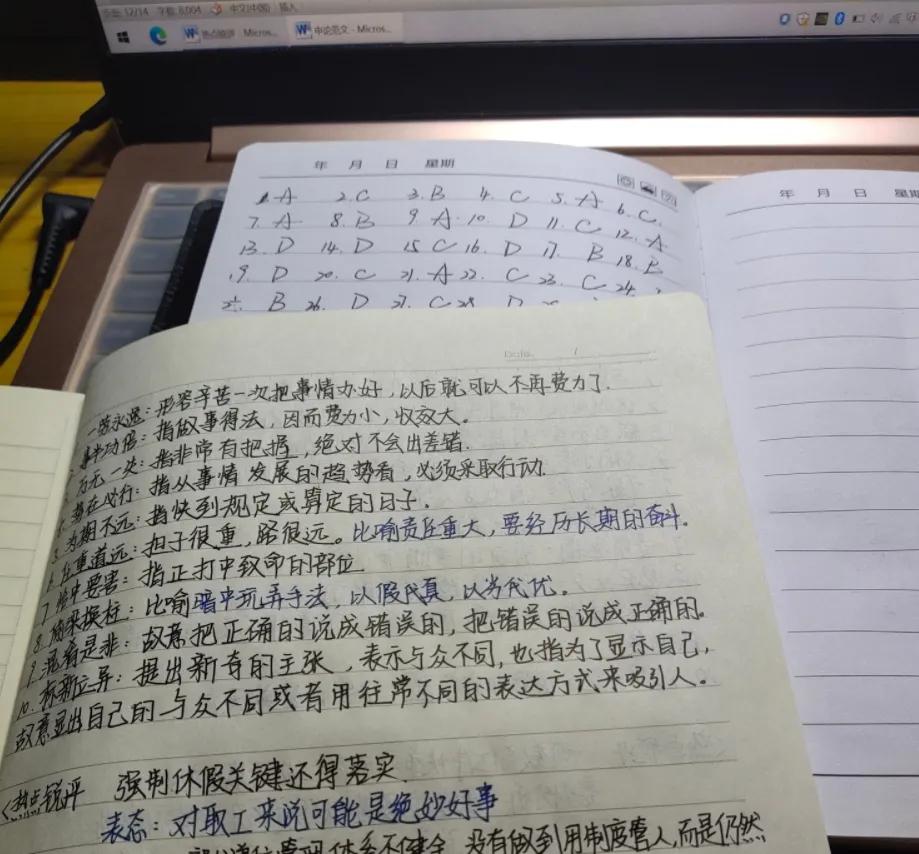 12/14 字数: 8,004 中文(中国) 插入
热点锐评 - Micros...
申论范文 - Micros...
年 月 日 星期
年 月 日 星期
1. A 2. C 3. B 4. C 5. A 6. C
7. A 8. B 9. A 10. D 11. C 12. A
13. D 14. D 15 C 16. D 17. B 18. B
19. D 20. C 21. A 22. C 23. C 24.
B 26. D 27. C 28. D
Date. /
一劳永逸：形容辛苦一次把事情办好，以后就可以不再费力了.
事半功倍：指做事得法，因而费力小，收效大。
万无一失：指非常有把握，绝对不会出差错.
4. 势在必行：指从事情发展的趋势看，必须采取行动.
5. 为期不远：指快到规定或算定的日子.
6. 任重道远：担子很重，路很远。比喻责任重大，要经历长期的奋斗.
7. 切中要害：指正打中致命的部位
8. 偷梁换柱：比喻暗中玩弄手法，以假代真，以劣代优。
9. 混淆是非：故意把正确的说成错误的，把错误的说成正确的.
10. 标新立异：提出新奇的主张，表示与众不同，也指为了显示自己，
故意显出自己的与众不同或者用往常不同的表达方式来吸引人。
<热点锐评 强制休假关键还得落实
表态：对职工来说可能是绝妙好事
体系不健全 没有做到用制度管人，而是仍然